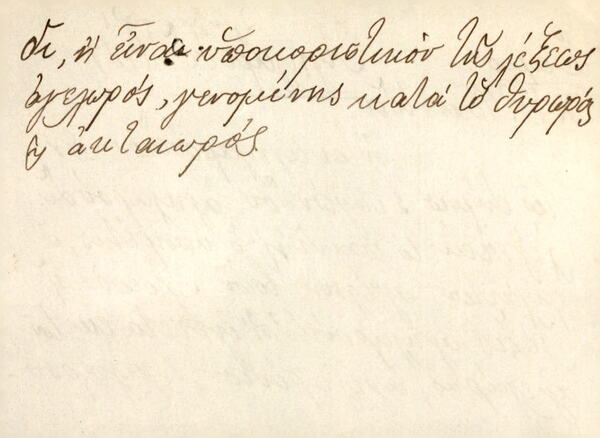 δι, ἢ εἶναι ὑποκοριστικὸν τῆς λέξεως
ἀγελωρός, γενομένης κατὰ τὸ θυρωρός
ἢ ἀκταιωρός.